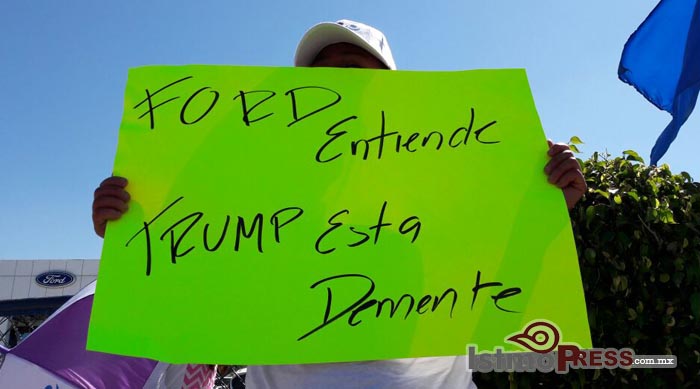 FORD
Entiende
TRUMP Esta
Demente
Ford
IstmoPRESS.com.mx